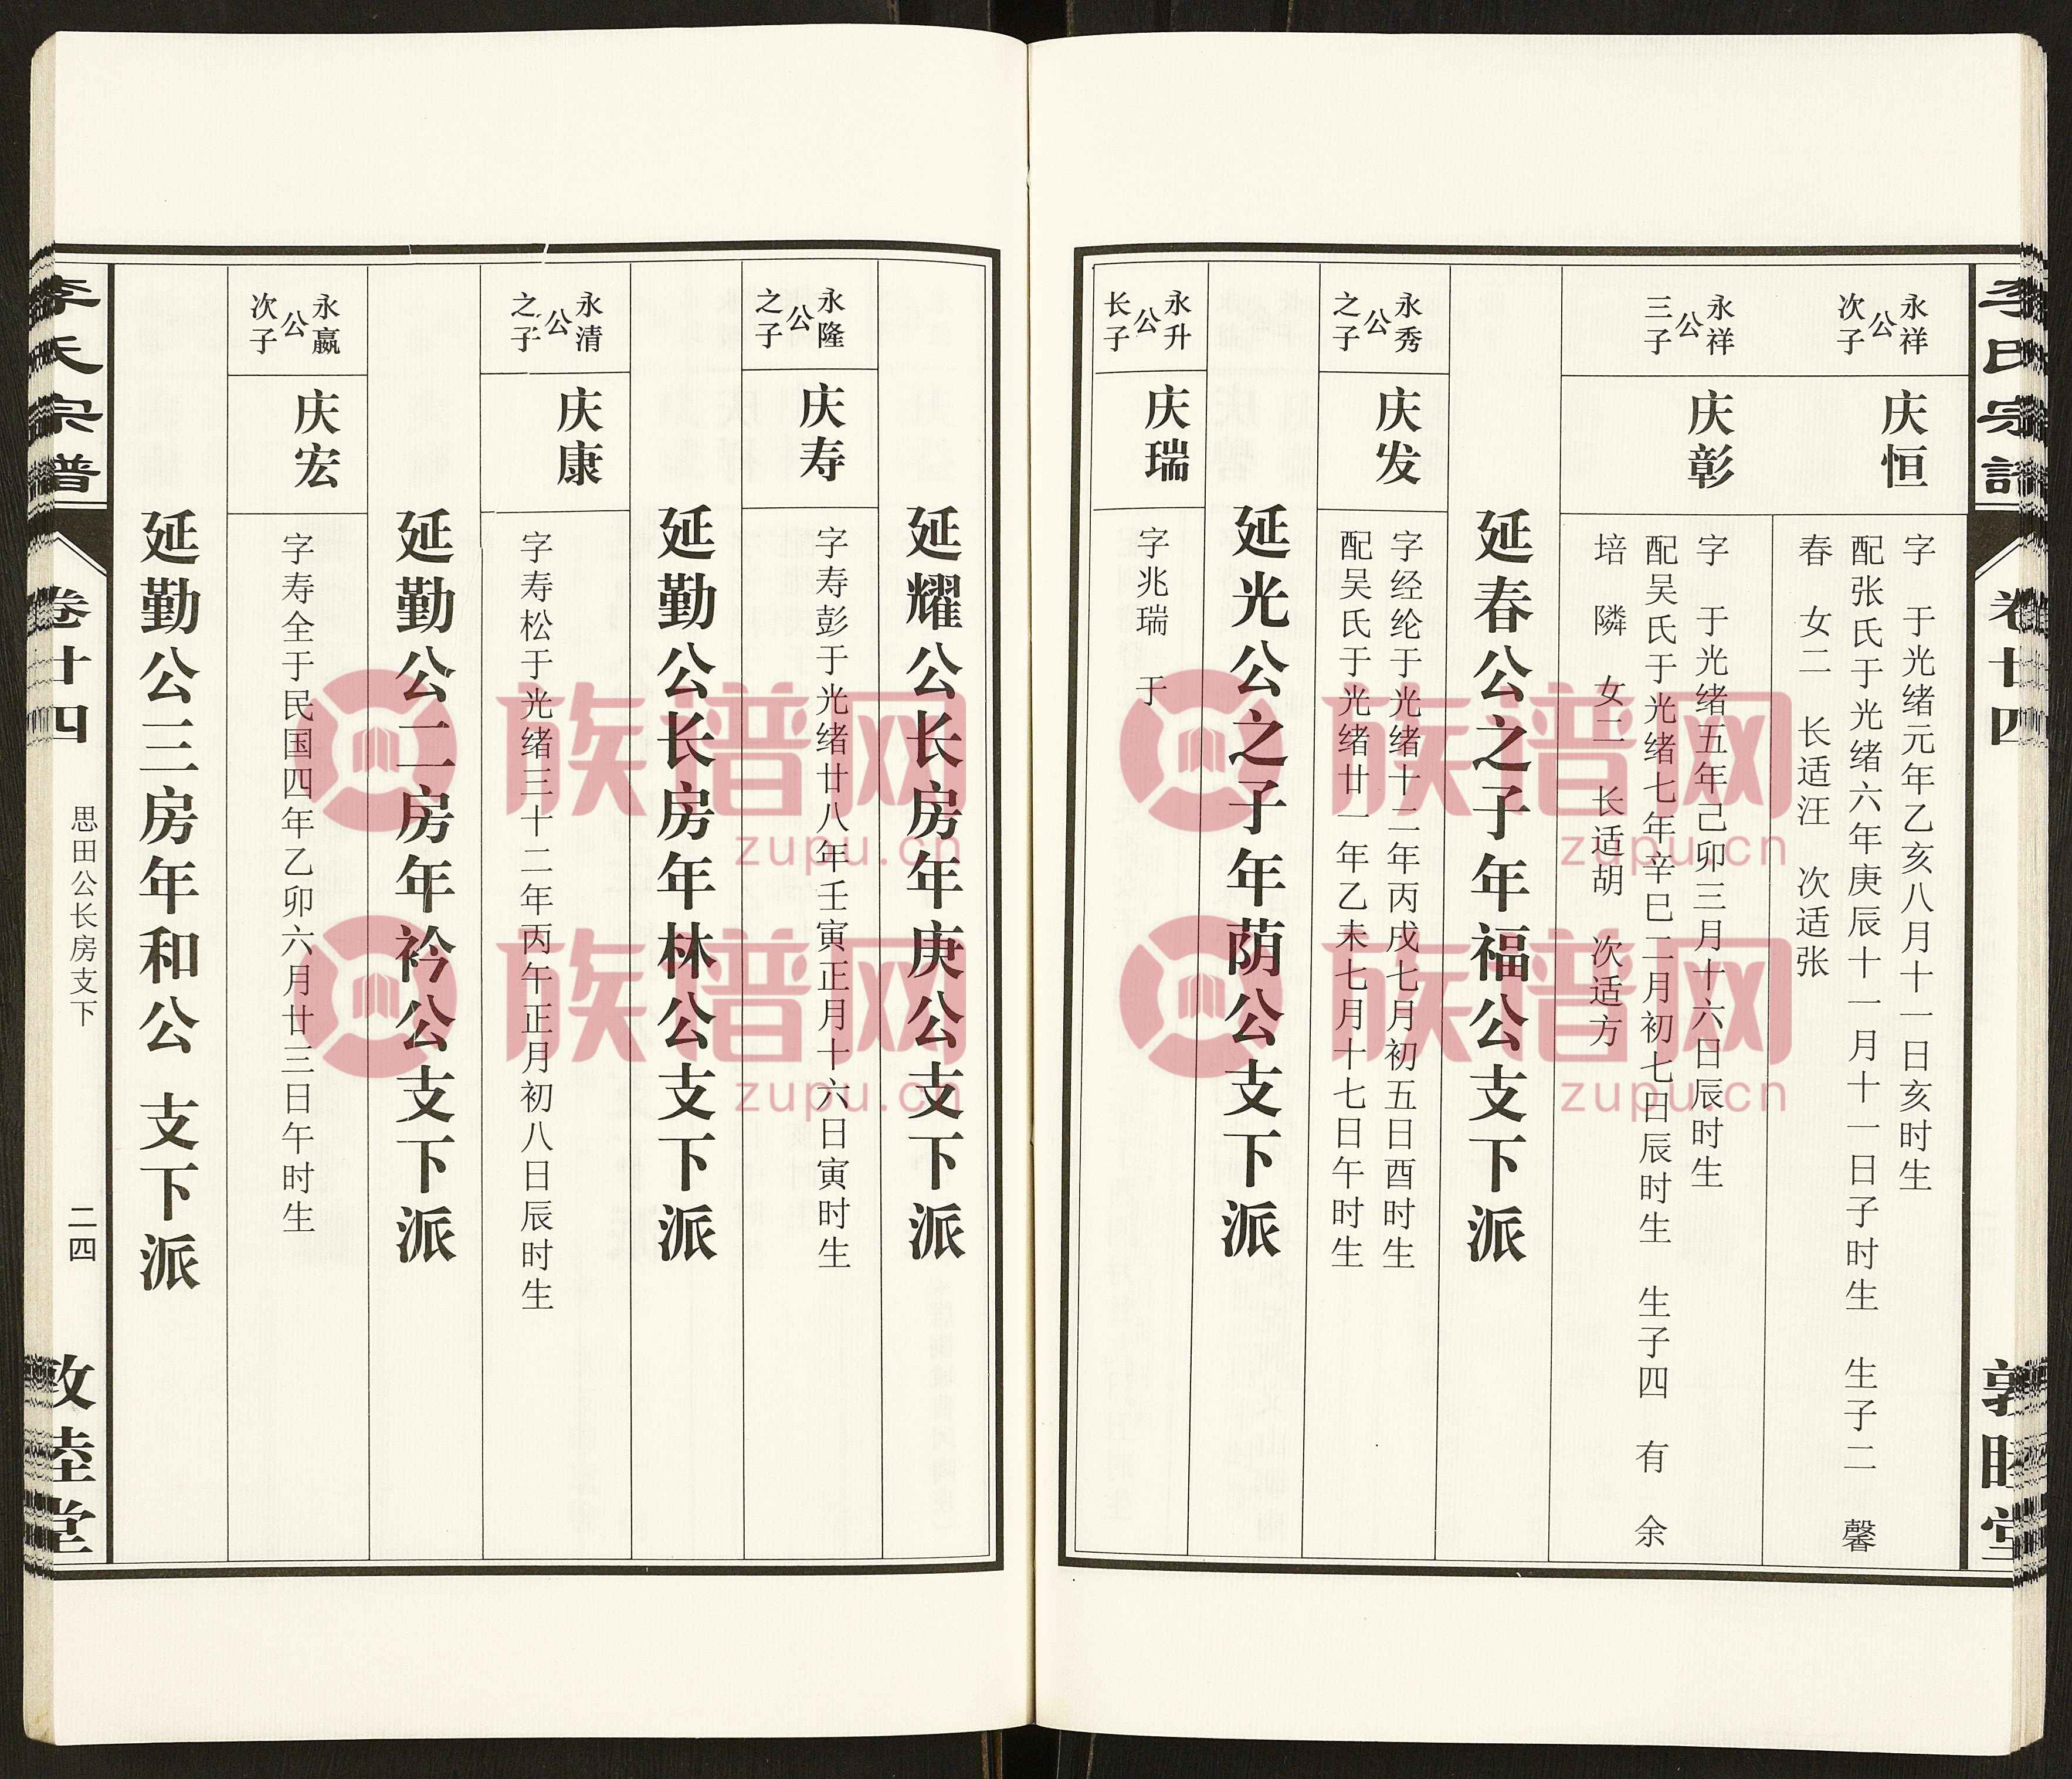 李氏宗谱
卷廿四
敦睦堂
永祥公次子
庆恒
字 于光绪元年乙亥八月十一日亥时生
配张氏于光绪六年庚辰十一月十一日子时生 生子二 馨
春 女二 长适汪 次适张
永祥公三子
庆彰
字 于光绪五年己卯三月十六日辰时生
配吴氏于光绪七年辛巳二月初七日辰时生 生子四 有 余
培 隣 女二 长适胡 次适方
延春公之子年福公支下派
永秀公之子
庆发
字经纶于光绪十二年丙戌七月初五日酉时生
配吴氏于光绪廿一年乙未七月十七日午时生
延光公之子年荫公支下派
永升公长子
庆瑞
字兆瑞 于
延耀公长房年庚公支下派
永隆公之子
庆寿
字寿彭于光绪廿八年壬寅正月十六日寅时生
延勤公长房年林公支下派
永清公之子
庆康
字寿松于光绪三十二年丙午正月初八日辰时生
延勤公二房年衿公支下派
永嬴公次子
庆宏
字寿全于民国四年乙卯六月廿三日午时生
延勤公三房年和公 支下派
李氏宗谱
卷廿四
思田公长房支下
二四
敦睦堂
族谱网
zupu.cn
族谱网
zupu.cn
族谱网
zupu.cn
族谱网
zupu.cn